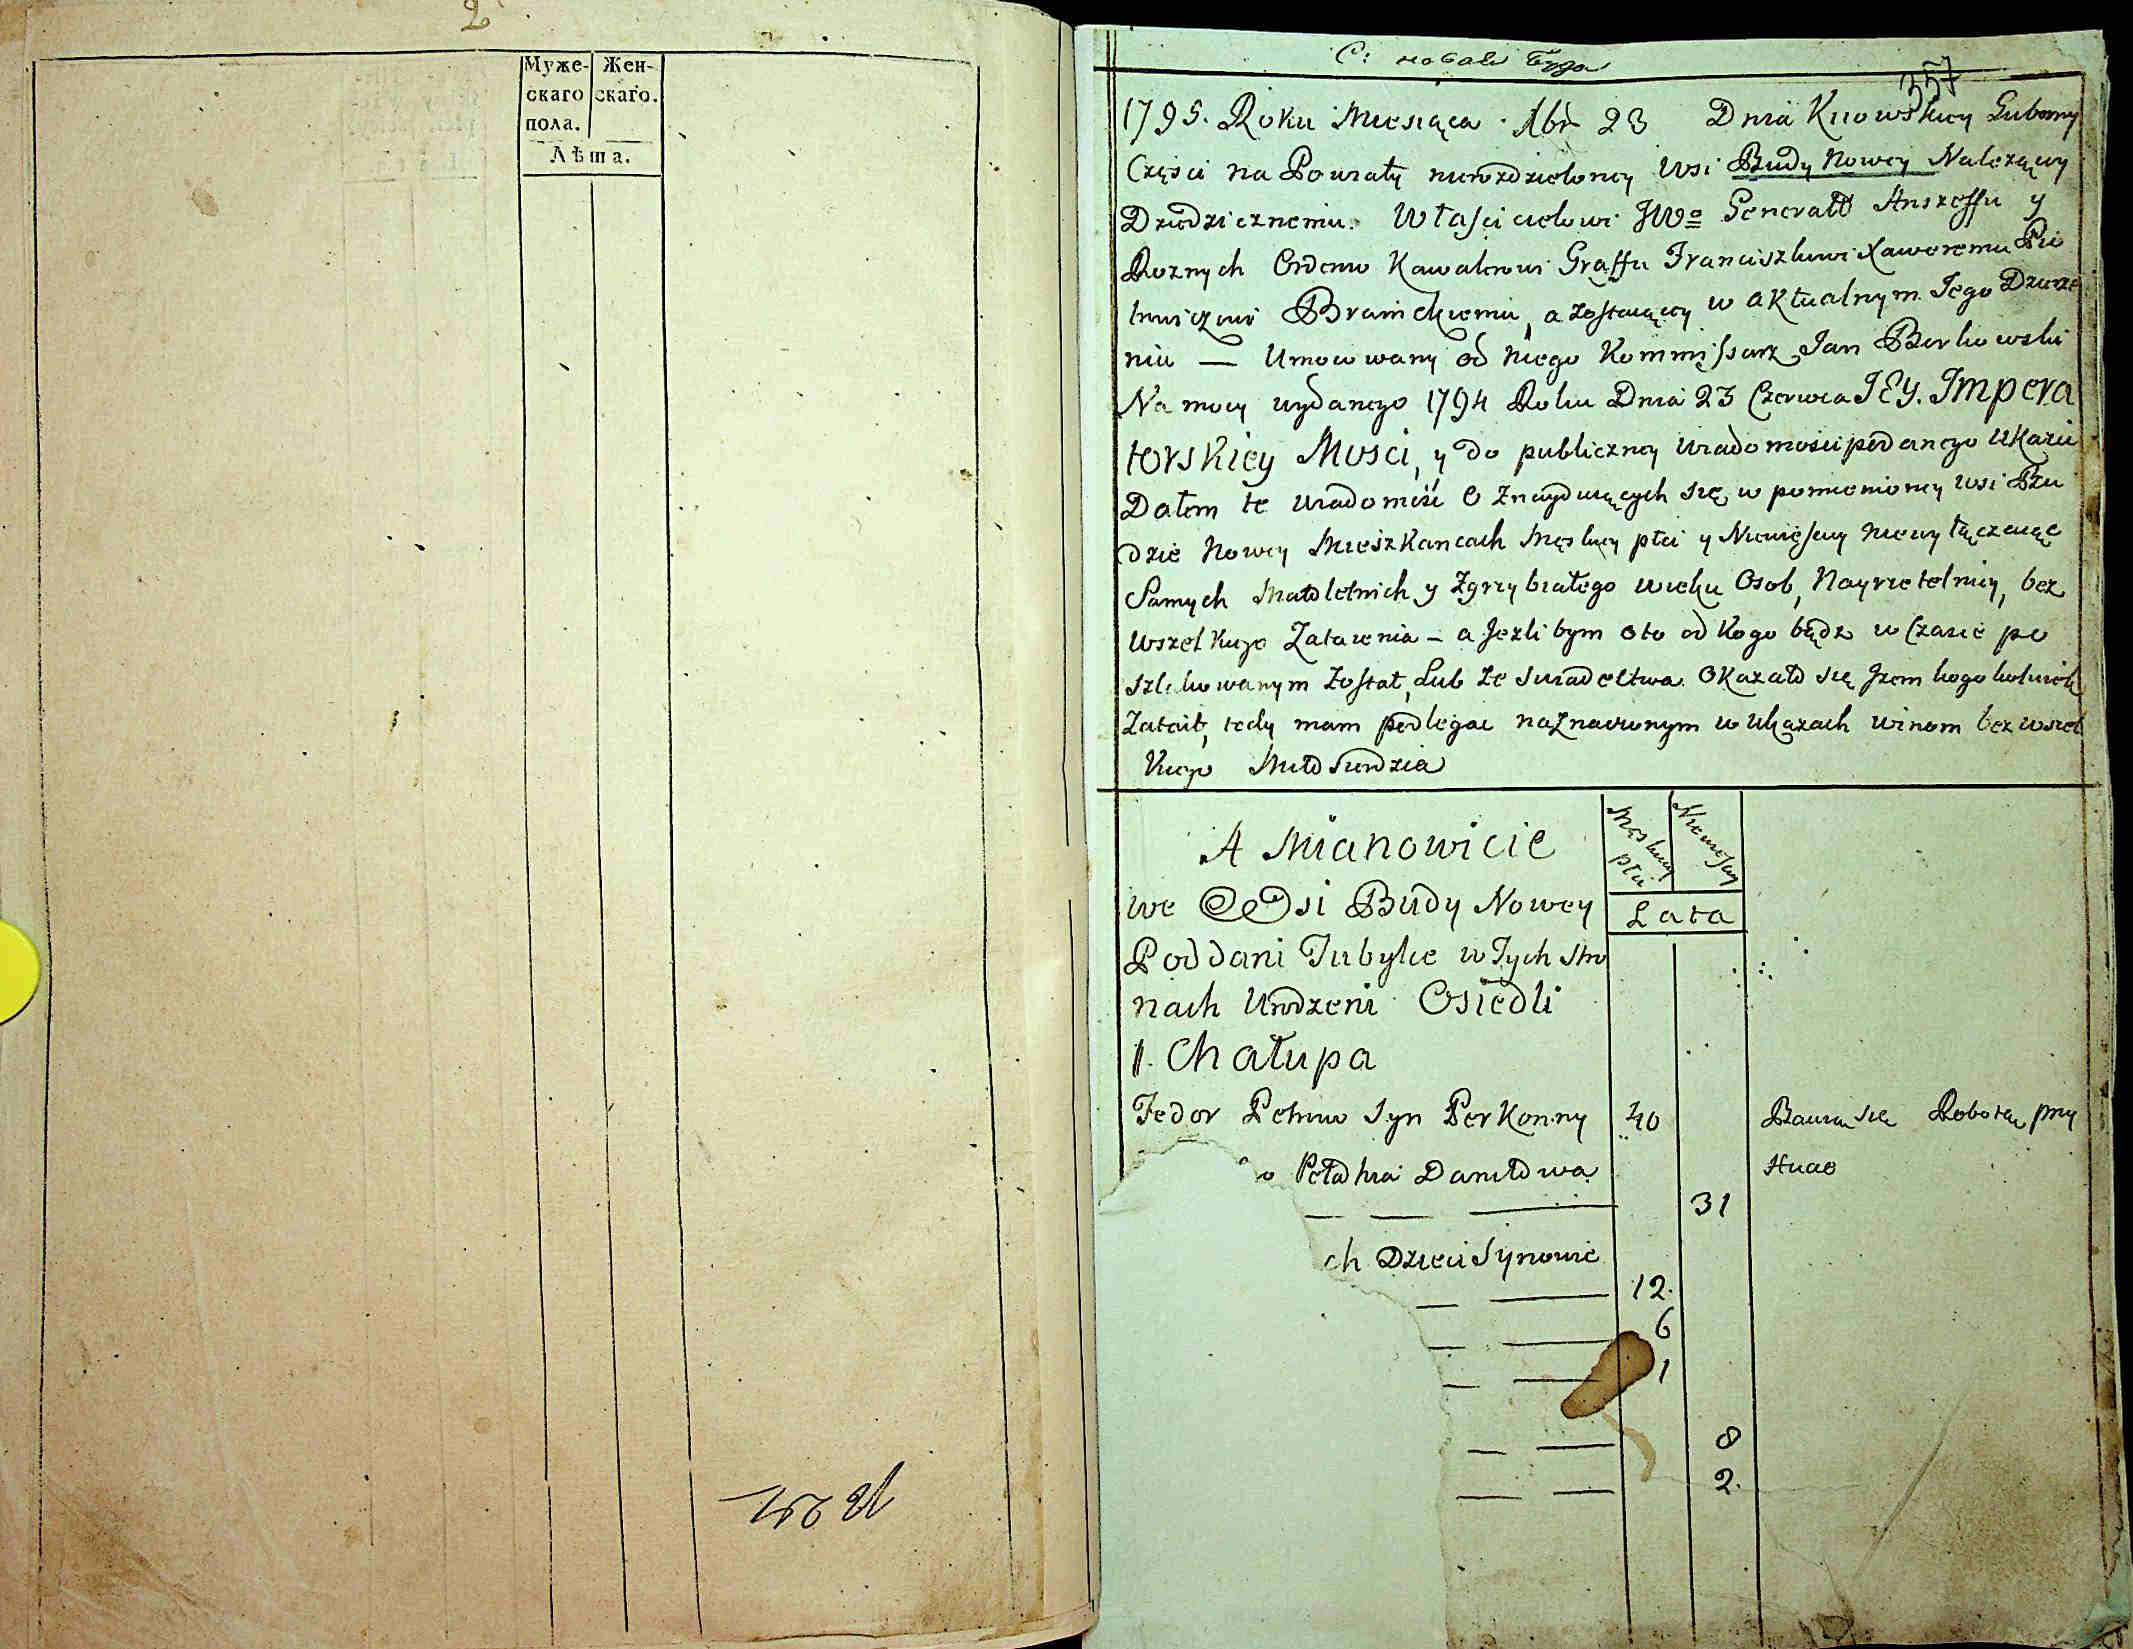 2
Муже-
скаго
пола.
Жен-
скаго.
Лѣта.
С: новая буда
357
1795. Roku Miesiąca Xbr 23 Dnia Kiiowskiey Guberny
Częsci na Powiaty nierozdzieloney Wsi Budy Nowey Należący
Dziedzicznemu Włascicielowi JWo Generało Anszeffu y
Roznych Orderow Kawalerowi Graffu Franciszkowi Xaweremu Pio
trowiczowi Branickiemu, a zostaiącey w aktualnym Jego Dzierze
niu — Umocowany od niego Kommissarz Jan Berkowski
Na mocy wydanego 1794 Roku Dnia 23 Czerwca JEY. Impera
torskiey Mosci, y do publiczney wiadomosci podanego Ukazu
Dałem te wiadomosc o znayduiących się w pomienioney wsi Bu
dzie Nowey Mieszkancach Męskiey płci y Niewiesciey niewyłączaiąc
Samych Małoletnich y Zgrzybiałego wieku Osob, Nayrzetelniey, bez
wszelkiego Zataienia – a Jezli bym oto od kogo bądz w Czasie po
szlakowanym został, Lub ze swiadectwa okazało się Jzem kogo kolwiek
Zataił, tedy mam podlegac naznaczonym w Ukazach winom bez wszel
kiego Miłosierdzia
A Mianowicie
Męskiey
płci
Niewiesciey
we Wsi Budy Nowey
Lata
Poddani Tubylce w Tych Stro
nach Urodzeni Osiedli
1. Chałupa
Fedor Petrow Syn Perkonny 40 Bawi się Robotą przy
o Pełahia Daniłowa
31
ch Dzieci Synowie
12.
6
1
8
2.